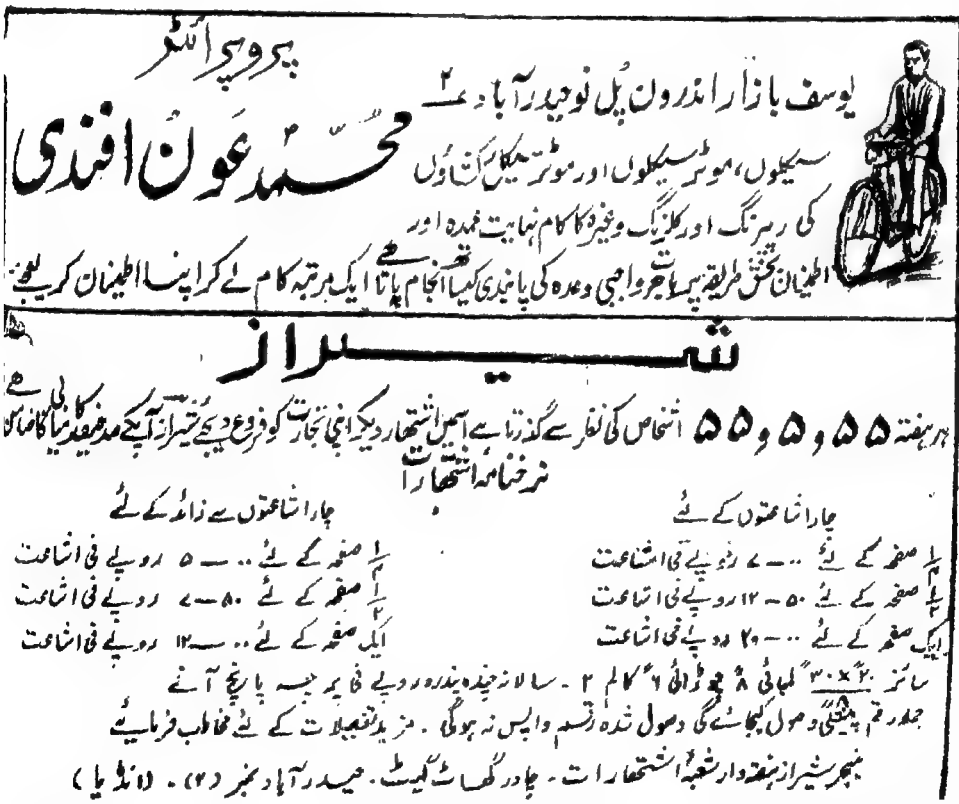 پروپرائٹر
محمد عون افندی
یوسف بازار اندرون پل نو حیدرآباد ۲
سیکلوں، موٹر سیکلوں اور موٹر سیکل رکشاؤں
کی ریپرنگ اور کلرنگ وغیرہ کا کام نہایت عمدہ اور
اطمینان بخش طریقہ پر باجرت واجبی وعدہ کی پابندی کیساتھ انجام پاتا ہے ایک مرتبہ کام لے کر اپنا اطمینان کر لیجئے
شیراز
ہر ہفتہ ۵۵,۵,۵۵ اشخاص کی نظر سے گذرتا ہے اسمیں اشتہار دیکر اپنی تجارت کو فروغ دیجئے شیراز آپکے صد فیصد کامیابی کا ضامن ہے
نرخنامہ اشتہارات
چار اشاعتوں کے لئے
۱/۴ صفحہ کے لئے ۰۰-۷ روپے فی اشاعت
۱/۲ صفحہ کے لئے ۵۰-۱۲ روپے فی اشاعت
ایک صفحہ کے لئے ۰۰-۲۰ روپے فی اشاعت
چار اشاعتوں سے زائد کے لئے
۱/۴ صفحہ کے لئے ۰۰-۵ روپے فی اشاعت
۱/۲ صفحہ کے لئے ۸۰-۷ روپے فی اشاعت
ایک صفحہ کے لئے ۰۰-۱۲ روپے فی اشاعت
سائز ۲۰×۳۰/۸ لمبائی ۸" چوڑائی ۶" کالم ۲ - سالانہ چندہ پندرہ روپے فی پرچہ پانچ آنے
جملہ رقم پیشگی وصول کیجائے گی وصول شدہ رقم واپس نہ ہوگی . مزید تفصیلات کے لئے مخاطب فرمائیے
منیجر شیراز ہفتہ وار شعبۂ اشتہارات - چادر گھاٹ گیٹ . حیدرآباد نمبر (۲) . (انڈیا)